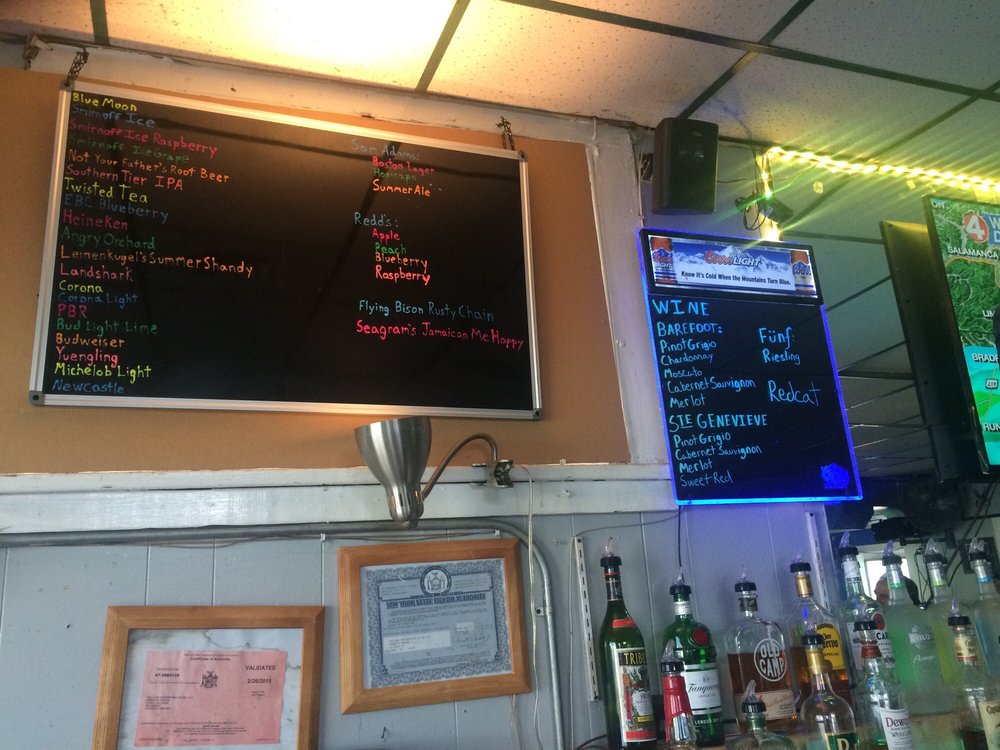 Blue Moon
Smirnoff Ice
Smirnoff Ice Raspberry
Smirnoff Ice Grape
Not Your Father's Root Beer
Southern Tier IPA
Twisted Tea
EBC Blueberry
Heineken
Angry Orchard
Leinenkugel's Summer Shandy
Landshark
Corona
Corona Light
PBR
Bud Light Lime
Budweiser
Yuengling
Michelob Light
Newcastle
Sam Adams:
Boston Lager
Hopscape
Summer Ale
Redd's:
Apple
Peach
Blueberry
Raspberry
Flying Bison Rusty Chain
Seagram's Jamaican Me Happy
Coors LIGHT
Know It's Cold When the Mountains Turn Blue.
WINE
BAREFOOT:
Pinot Grigio
Chardonnay
Moscato
Cabernet Sauvignon
Merlot
Fünf:
Riesling
Redcat
STE GENEVIEVE
Pinot Grigio
Cabernet Sauvignon
Merlot
Sweet Red
ON
4
SALAMANCA
BRADF
RUN
NEW YORK STATE LIQUOR AUTHORITY
Certificate of Authority
VALIDATED
2/26/2015
TRIB
Tanqueray
IMPORTED
LONDON
OLD
CAMP
SPECIAL
Dewar's